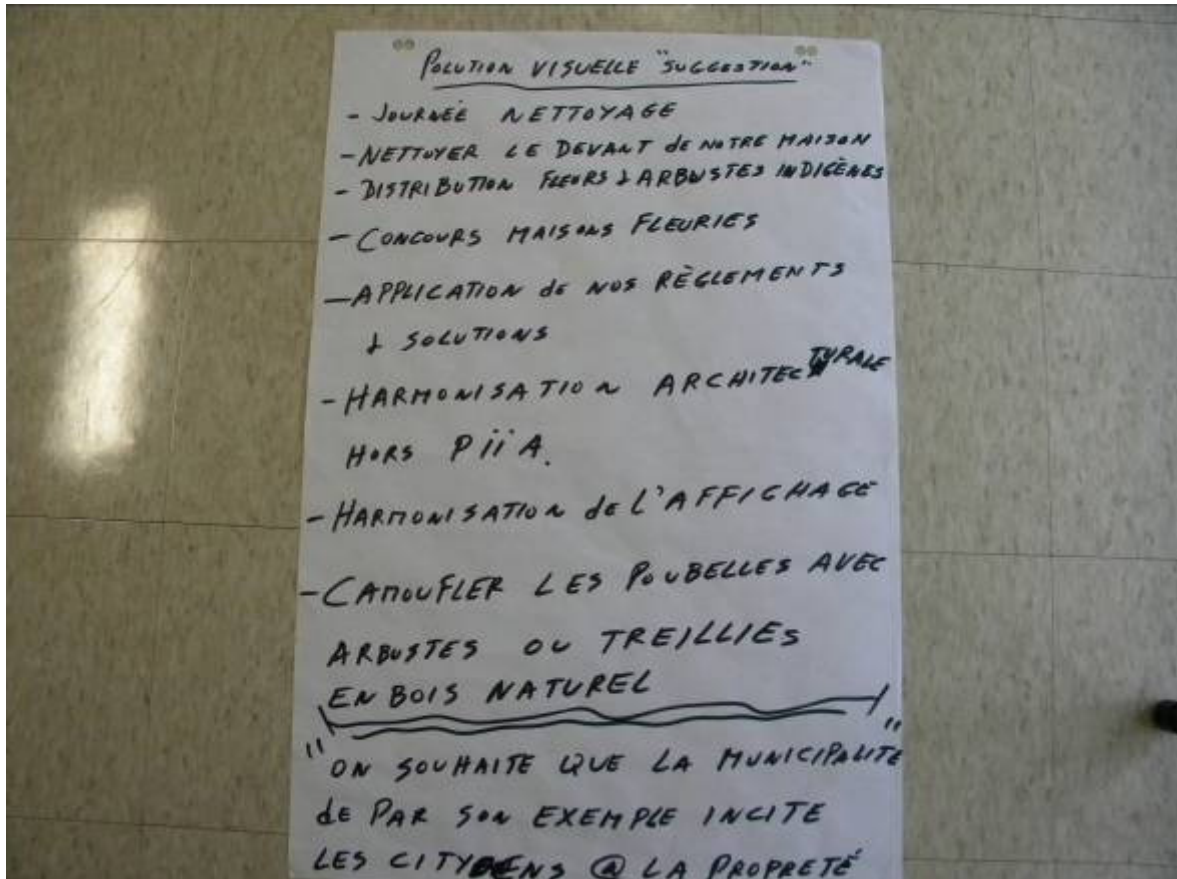 POLUTION VISUELLE "SUGGESTION"
- JOURNÉE NETTOYAGE
- NETTOYER LE DEVANT de NOTRE MAISON
- DISTRIBUTION FLEURS & ARBUSTES INDIGÈNES
- CONCOURS MAISONS FLEURIES
- APPLICATION de NOS RÈGLEMENTS
& SOLUTIONS
- HARMONISATION ARCHITECTURALE
HORS PiiA.
- HARMONISATION de L'AFFICHAGE
- CAMOUFLER LES POUBELLES AVEC
ARBUSTES OU TREILLIES
EN BOIS NATUREL
"ON SOUHAITE QUE LA MUNICIPALITÉ"
de PAR SON EXEMPLE INCITE
LES CITYENS @ LA PROPRETÉ